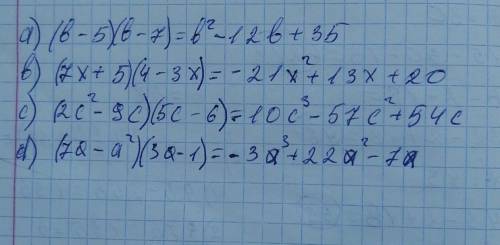 a) (b-5)(b-7)=b²-12b+35
b) (7x+5)(4-3x)=-21x²+13x+20
c) (2c²-9c)(5c-6)=10c³-57c²+54c
d) (7a-a²)(3a-1)=-3a³+22a²-7a